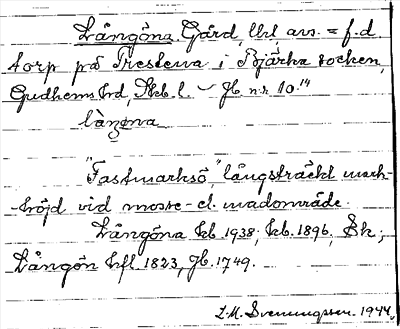 Långöna Gård, lhl avs. = f. d.
torp på Prestena i Bjärka socken,
Gudhems hd, Skb. l. – Jb nr 10.¹⁴
làngena
"Fastmarksö," långsträckt mark-
-höjd vid mosse- el. madområde.
Långöna kb. 1938; kb. 1896, Sk;
Långön hfl 1823, Jb. 1749.
L.M. Svenungsson. 1944.